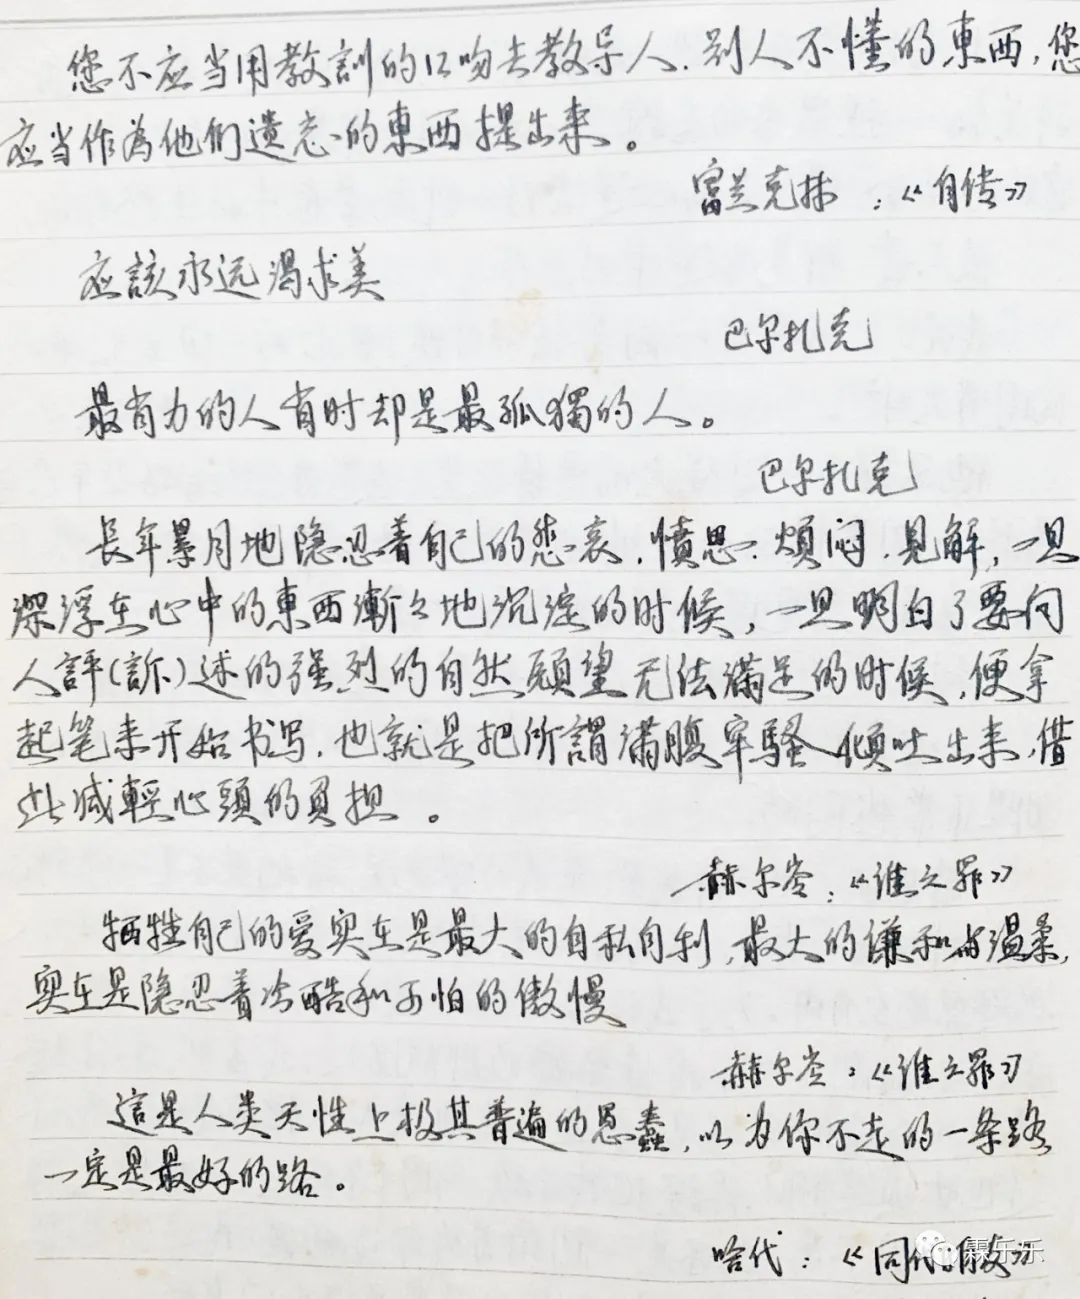 您不应当用教訓的口吻去教导人.别人不懂的東西,您
应当作为他们遗忘的東西提出来。
富兰克林:《自传》
应該永远渴求美
巴尔扎克
最有力的人有时却是最孤獨的人。
巴尔扎克
長年累月地隐忍着自己的悲哀.愤思.煩闷.見解,一旦
深浮在心中的東西漸々地沉淀的时候,一旦明白了要向
人評(訴)述的强烈的自然願望无法滿足的时候,便拿
起笔来开始书写.也就是把所謂满腹牢騷傾吐出来,借
此减輕心頭的負担。
赫尔岑:《谁之罪》
牺牲自己的爱实在是最大的自私自利,最大的谦和与温柔,
实在是隐忍着冷酷和可怕的傲慢
赫尔岑:《谁之罪》
這是人类天性上极其普遍的愚蠢,以为你不走的一条路
一定是最好的路。
哈代:《同代
霖乐乐